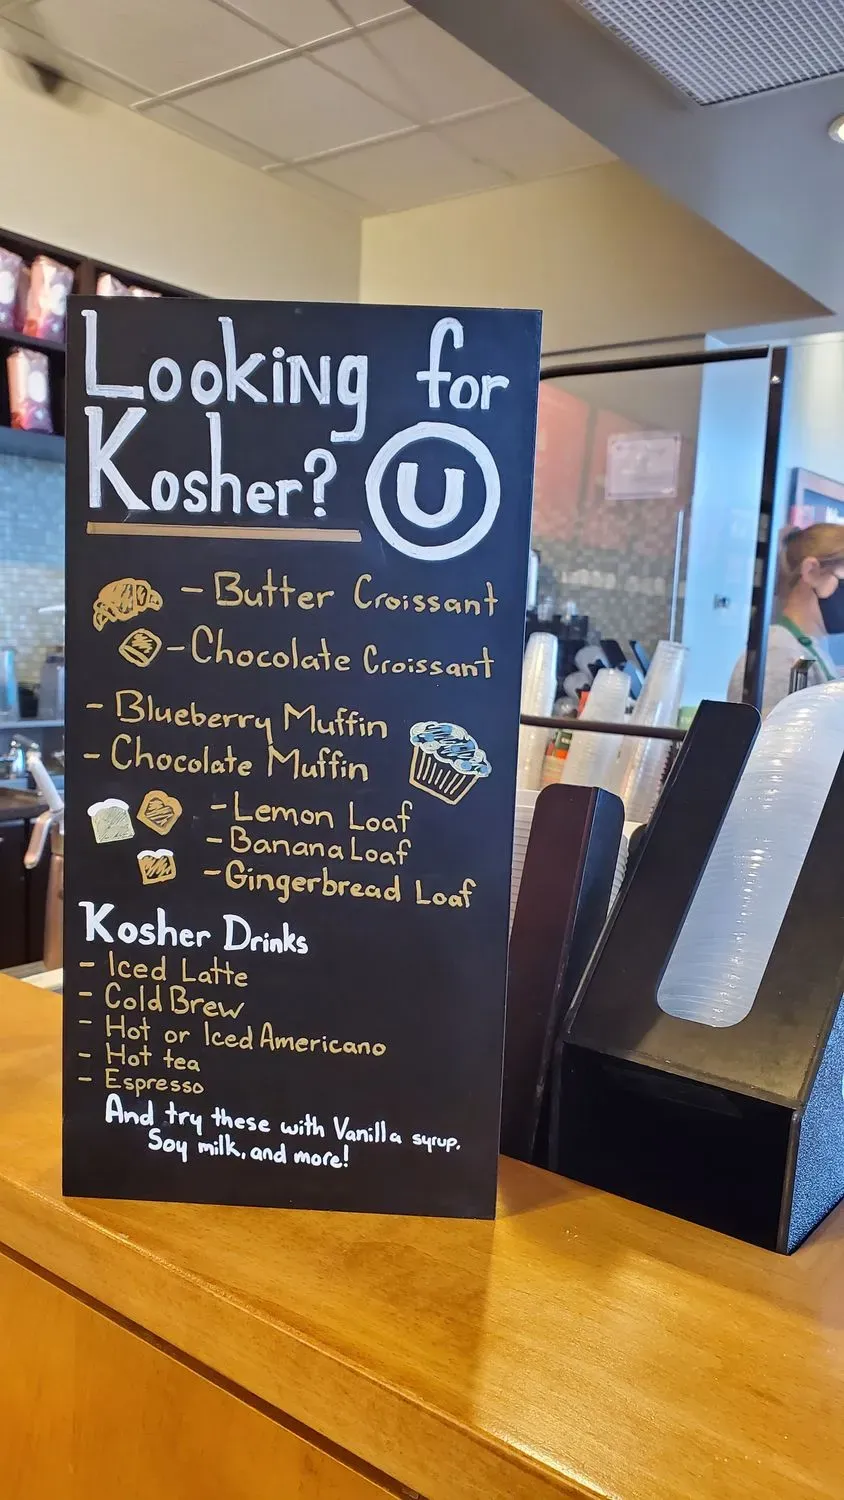 Looking for
Kosher? U
- Butter Croissant
- Chocolate Croissant
- Blueberry Muffin
- Chocolate Muffin
- Lemon Loaf
- Banana Loaf
- Gingerbread Loaf
Kosher Drinks
- Iced Latte
- Cold Brew
- Hot or Iced Americano
- Hot tea
- Espresso
And try these with Vanilla syrup,
Soy milk, and more!